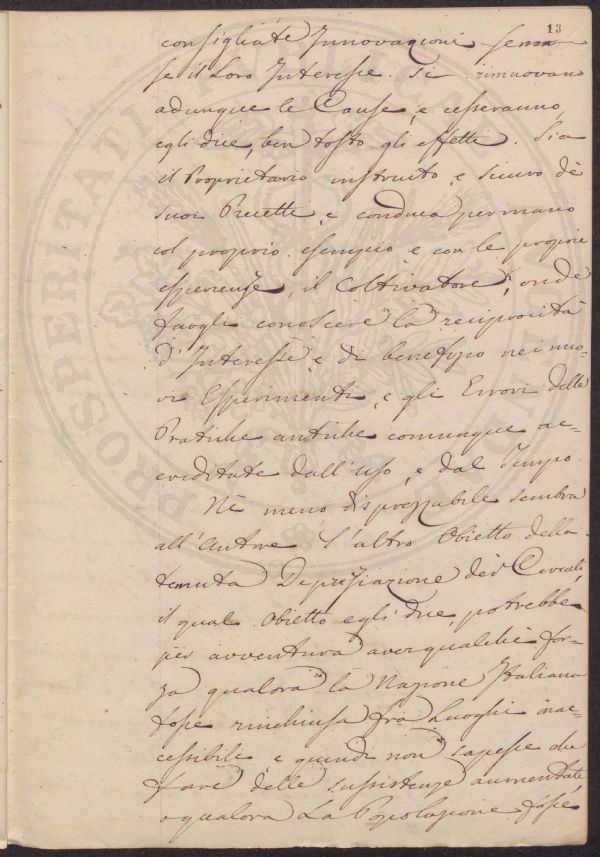 13
consigliate Innovazioni
se il Loro Interesse. Si rimuovano
adunque le Cause, e cesseranno,
egli dice, ben tosto gli effetti. Sia
il Proprietario instruito, e sicuro de
suoi Precetti, e conduca per mano
col proprio esempio, e con le proprie
esperienze, il Coltivatore, onde
faccgli conoscere la reciprocità
d'Interesse, e di benefizio nei nuo-
vi Esperimenti, e gli Errori delle
Pratiche antiche comunque ac-
creditate dall'uso, e dal Tempo.
Nè meno disprezzabile sembra
all'Autore l'altro Obietto della
temuta Depreziazione dei Cereali,
il qual Obietto egli dice, potrebbe
per avventura aver qualche for-
za qualora la Nazione Italiana
fosse rinchiusa fra Luoghi inac-
cessibili e quindi non sapesse che
fare delle sussistenze aumentate
o qualora La Popolazione fosse
PROSPERITATI PUBLICAE